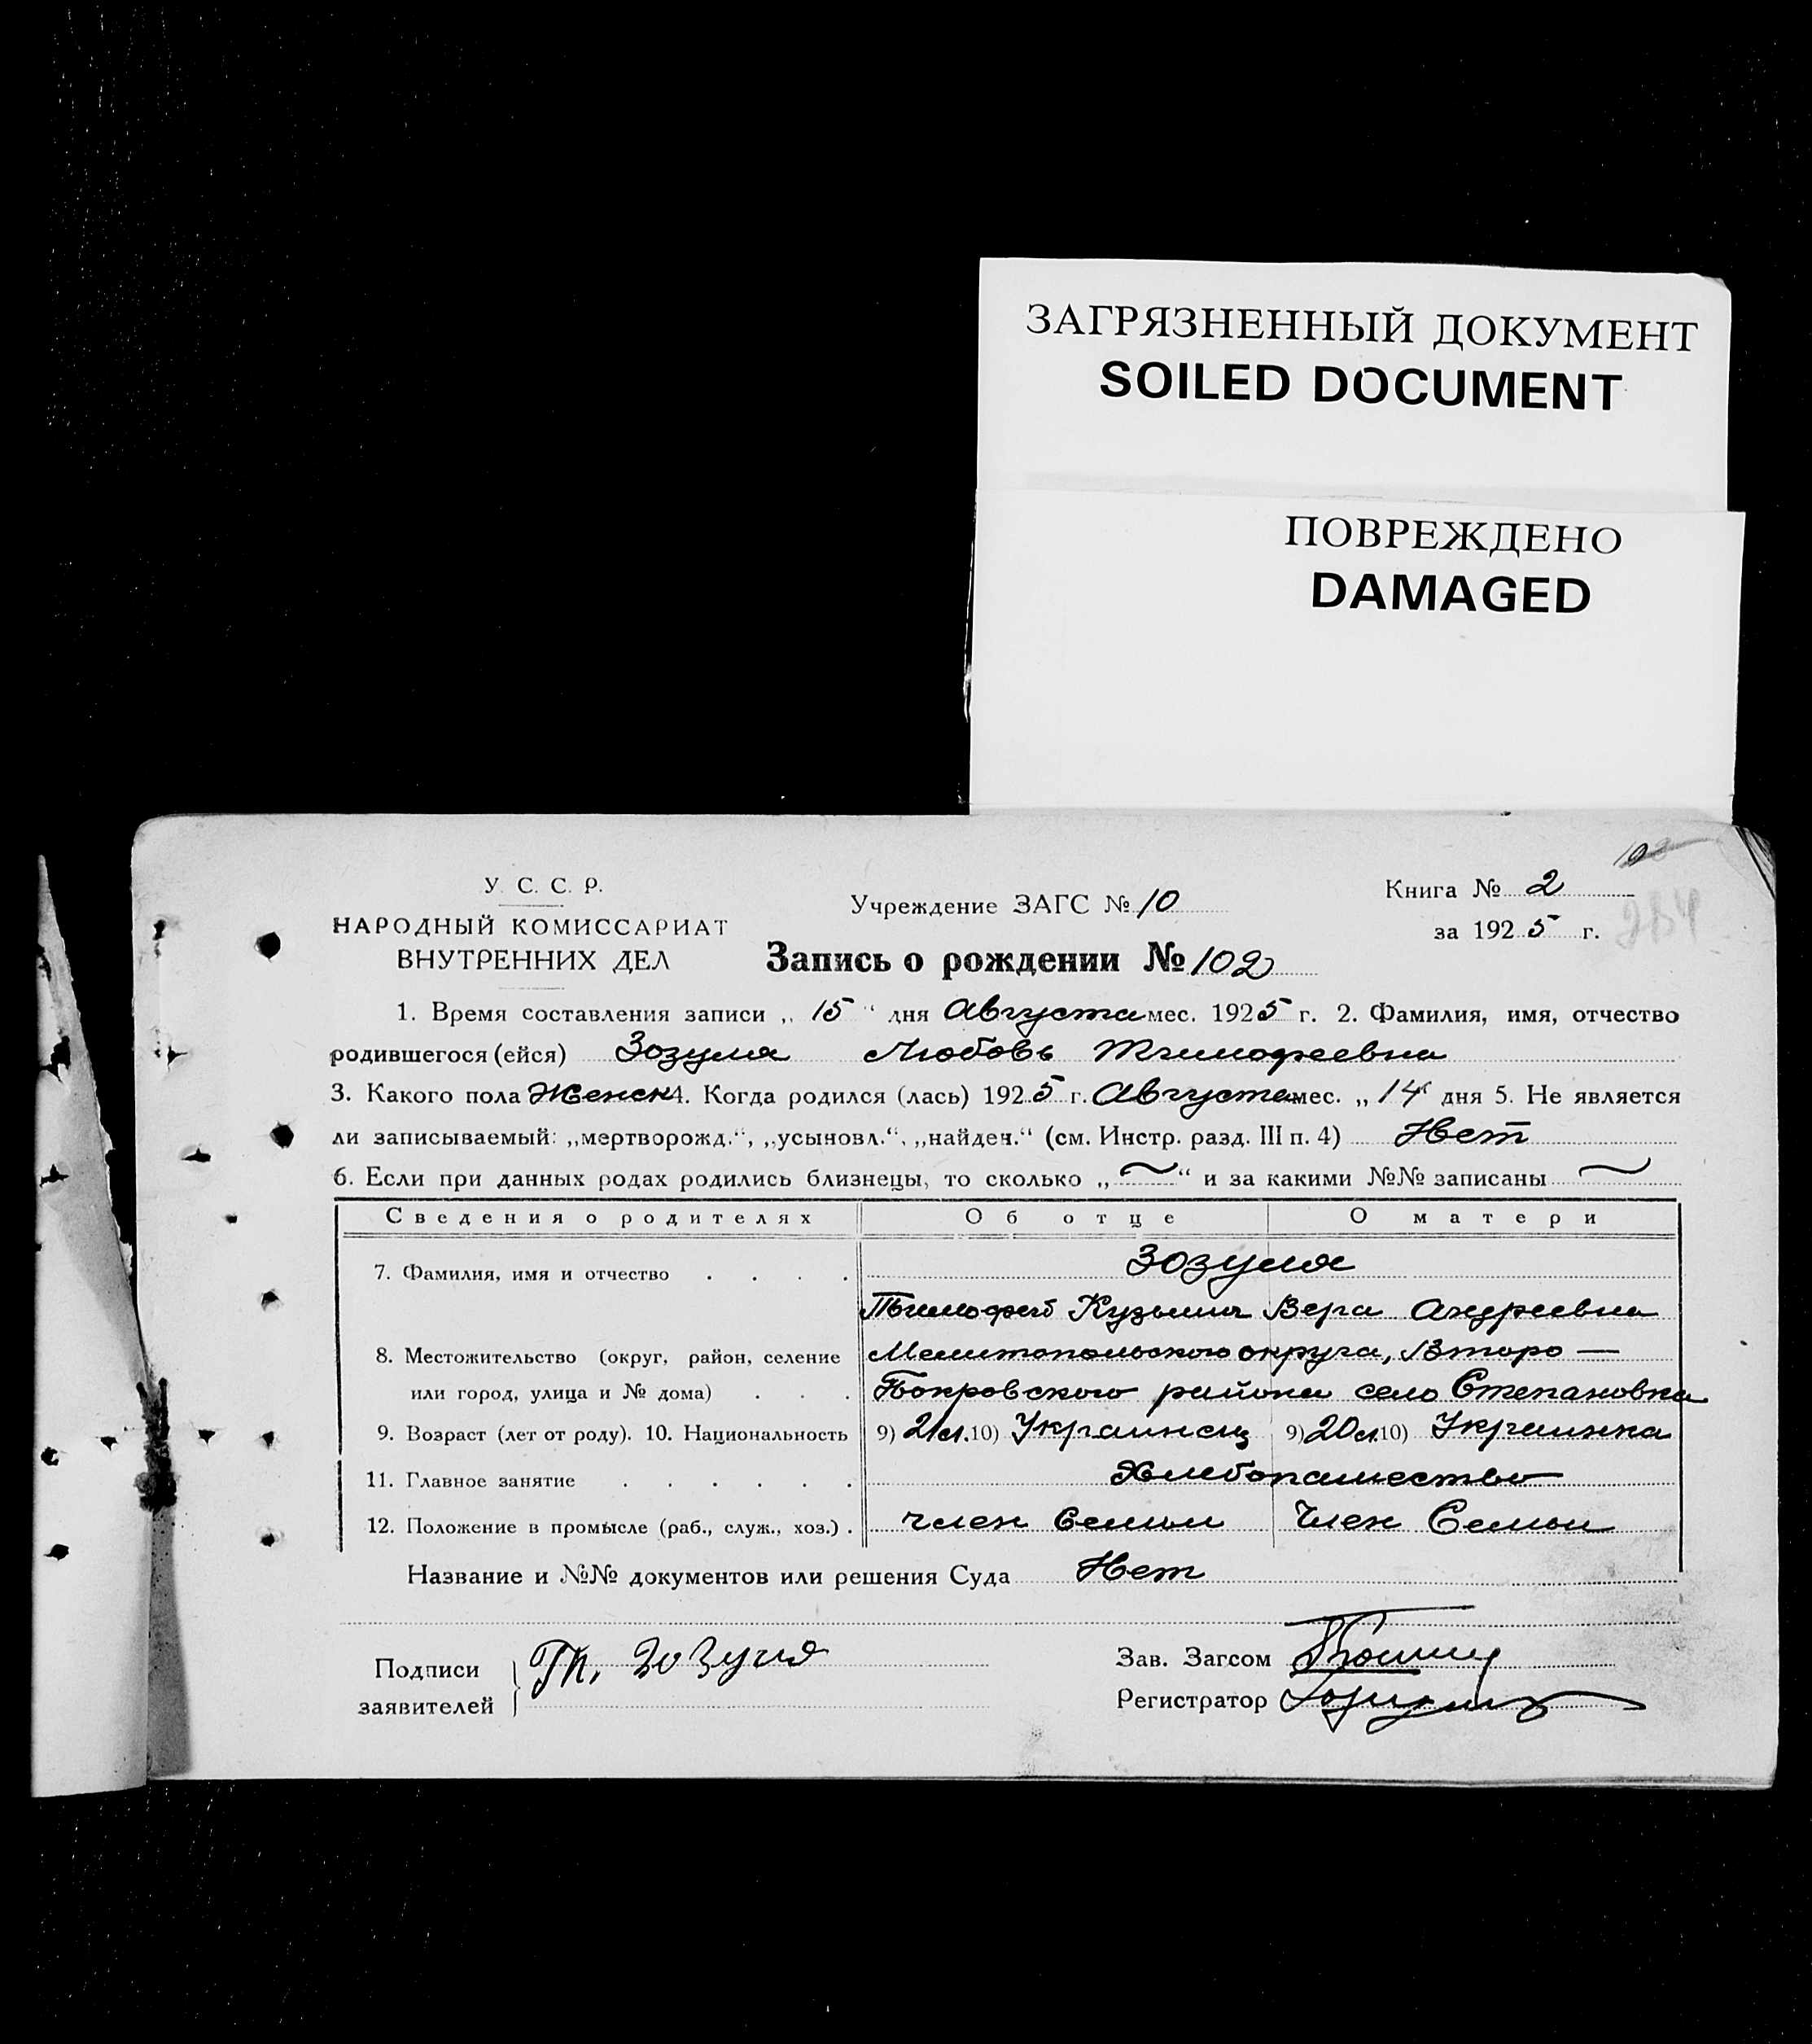 ЗАГРЯЗНЕННЫЙ ДОКУМЕНТ
SOILED DOCUMENT
ПОВРЕЖДЕНО
DAMAGED
У. С. С. Р.
НАРОДНЫЙ КОМИССАРИАТ
ВНУТРЕННИХ ДЕЛ
Учреждение ЗАГС № 10
Книга № 2
за 1925 г.
Запись о рождении № 102
1. Время составления записи „ 15 “ дня Августа мес. 1925 г. 2. Фамилия, имя, отчество
родившегося (ейся) Зозуля Любовь Тимофеевна
3. Какого пола Женск 4. Когда родился (лась) 1925 г. Августа мес. „ 14 “ дня 5. Не является
ли записываемый: „мертворожд.“, „усыновл.“, „найден.“ (см. Инстр. разд. III п. 4) Нет
6. Если при данных родах родились близнецы, то сколько „ — “ и за какими №№ записаны —
Сведения о родителях Об отце О матери
7. Фамилия, имя и отчество . . . . Зозуля
Тимофей Кузьмич Вера Андреевна
8. Местожительство (округ, район, селение Мелитопольского округа, Второ —
или город, улица и № дома) . . . Покровского района село Степановка
9. Возраст (лет от роду). 10. Национальность 9) 21 л. 10) Украинец 9) 20 л. 10) Украинка
11. Главное занятие . . . . . . Хлебопашество
12. Положение в промысле (раб., служ., хоз.) . член Семьи Член Семьи
Название и №№ документов или решения Суда Нет
Подписи
заявителей } Тк. Зозуля
Зав. Загсом
Регистратор